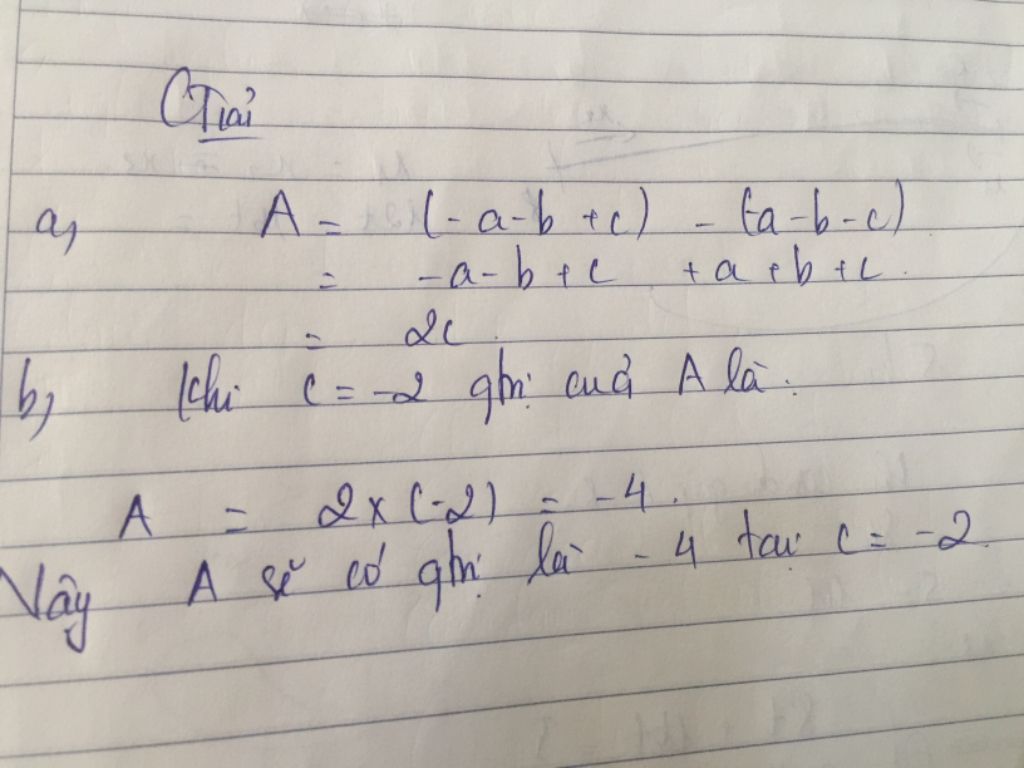 Giải
a, A = (-a-b+c) - (-a-b-c)
= -a-b+c +a+b+c
= 2c
b, Khi c = -2 gtrị cuả A là:
A = 2x(-2) = -4.
Vậy A sẽ có gtrị là -4 tại c = -2